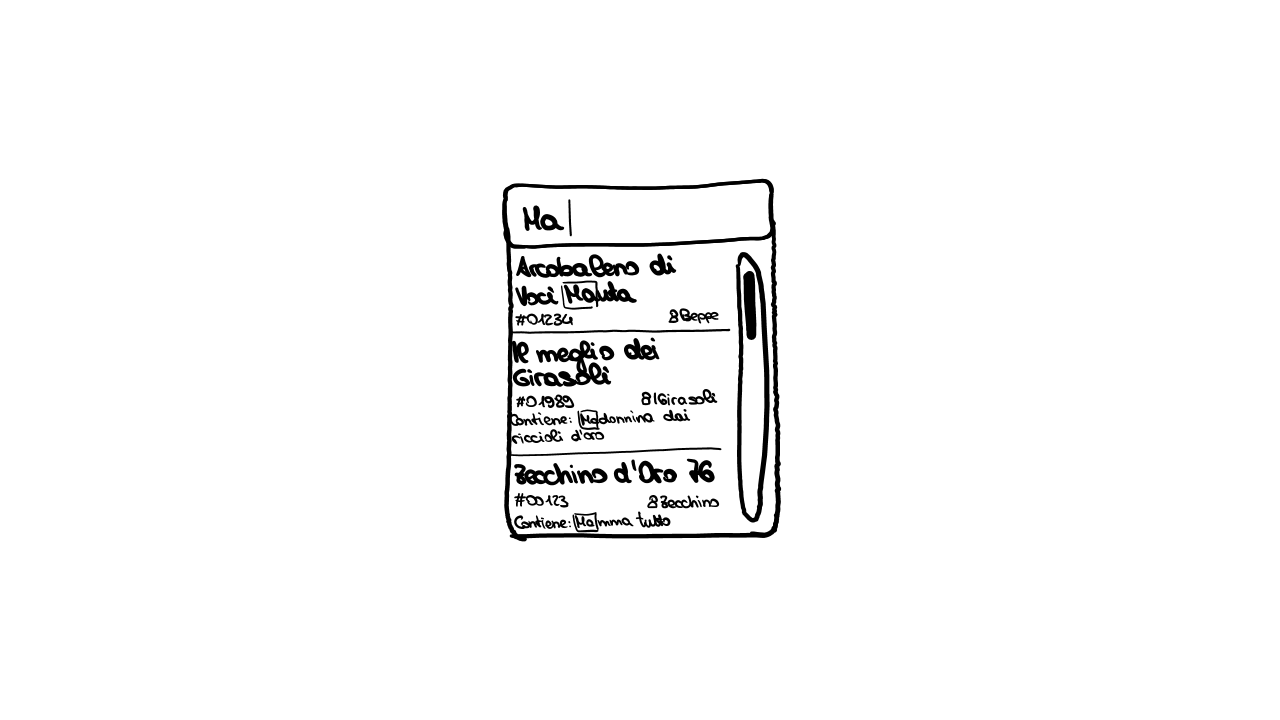 Ma
Arcobaleno di
Voci Manta
#01234 Beppe
Il meglio dei
Girasoli
#01989 I Girasoli
Contiene: Madonnina dai
riccioli d'oro
Zecchino d'Oro 76
#00123 Zecchino
Contiene: Mamma tutto